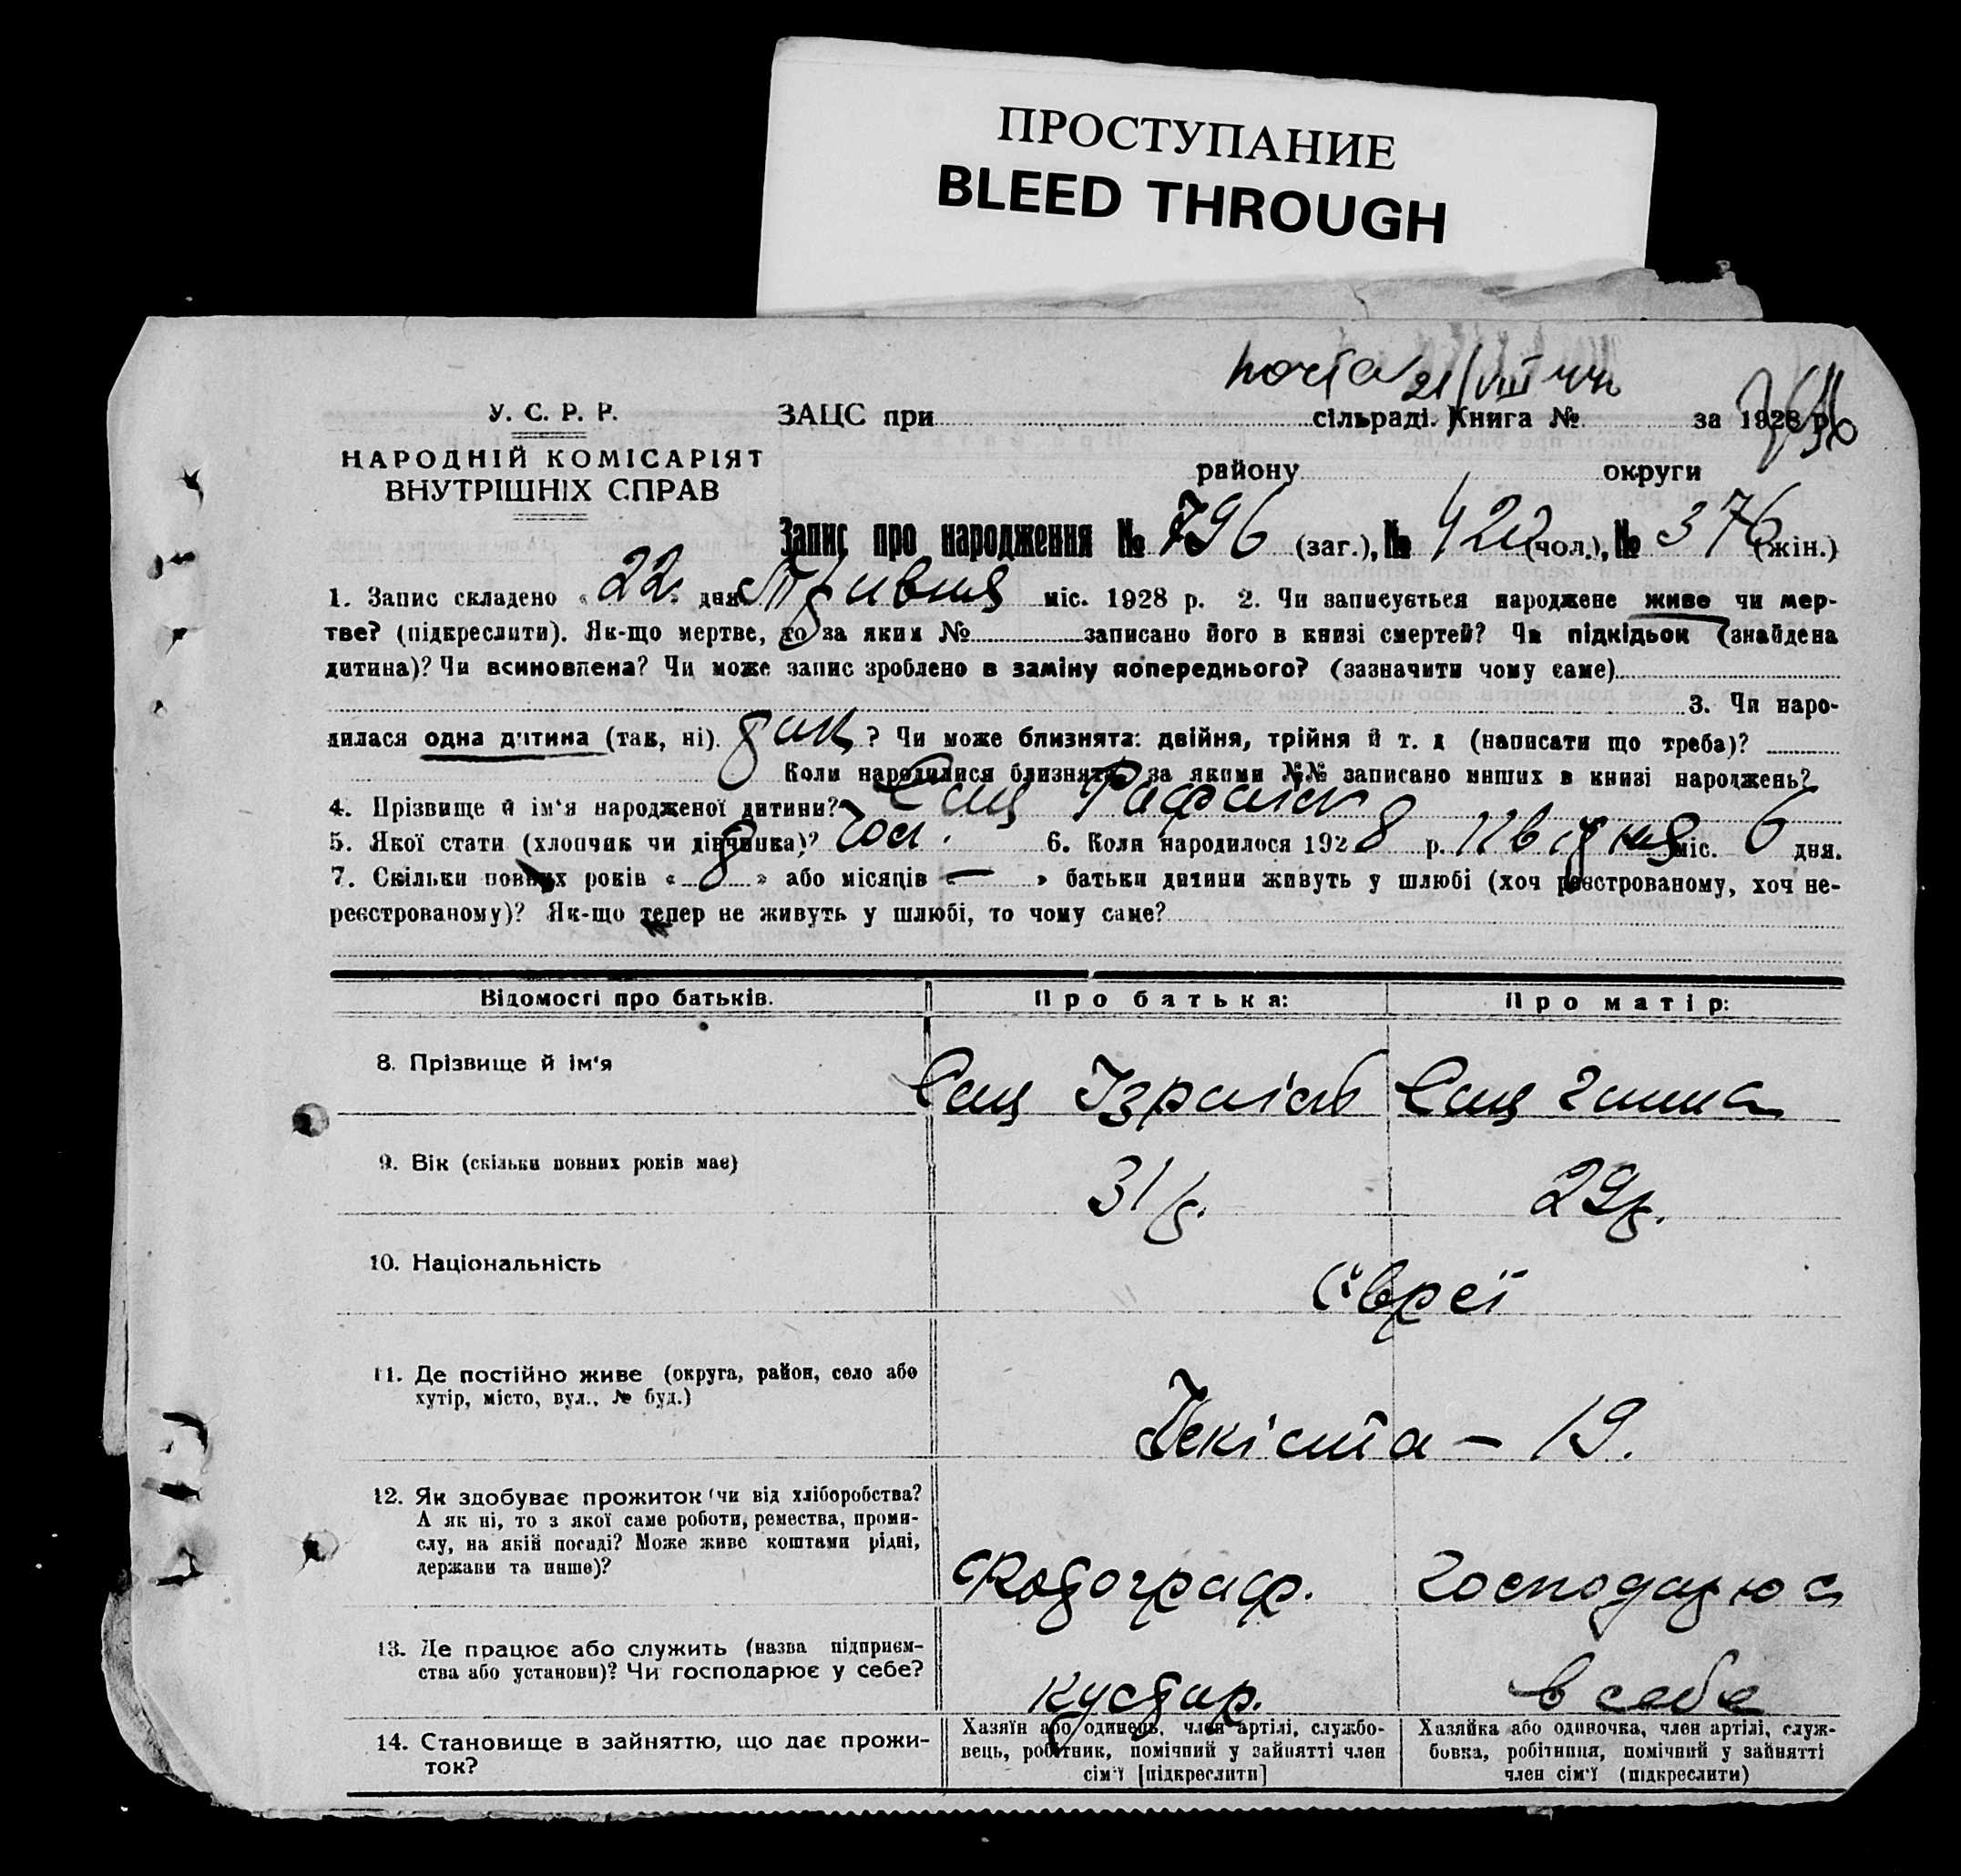 ПРОСТУПАНИЕ
BLEED THROUGH
почта 21/VIII 44
У. С. Р. Р.
НАРОДНІЙ КОМІСАРІЯТ
ВНУТРІШНІХ СПРАВ
ЗАЦС при сільраді. Книга № за 1928 р.
району округи
Запис про народження № 796 (заг.), № 420 (чол.), № 376 (жін.)
1. Запис складено « 22 » дня Травня міс. 1928 р. 2. Чи записується народжене живе чи мер-
тве? (підкреслити). Як-що мертве, то за яким № записано його в книзі смертей? Чи підкідьок (знайдена
дитина)? Чи всиновлена? Чи може запис зроблено в заміну попереднього? (зазначити чому саме)
3. Чи наро-
дилася одна дитина (так, ні). так ? Чи може близнята: двійня, трійня й т. д (написати що треба)?
Коли народилися близнята, за якими №№ записано инших в книзі народжень?
4. Прізвище й ім'я народженої дитини? Сац Рафаіл
5. Якої стати (хлопчик чи дівчинка)? чол. 6. Коли народилося 1928 р. Квітня міс. 6 дня.
7. Скільки повних років « 8 » або місяців « — » батьки дитини живуть у шлюбі (хоч реєстрованому, хоч не-
реєстрованому)? Як-що тепер не живуть у шлюбі, то чому саме?
Відомості про батьків. Про батька: Про матір:
8. Прізвище й ім'я Сац Ізраіль Сац Ганна
9. Вік (скільки повних років має) 31 р. 29 р.
10. Національність Євреї
11. Де постійно живе (округа, район, село або
хутір, місто, вул., № буд.)
19.
12. Як здобуває прожиток (чи від хліборобства?
А як ні, то з якої саме роботи, ремества, проми-
слу, на якій посаді? Може живе коштами рідні,
держави та инше)?
Фотограф. Господарює
13. Де працює або служить (назва підприєм-
ства або установи)? Чи господарює у себе?
кустар. в себе
14. Становище в зайняттю, що дає прожи-
ток?
Хазяїн або одинець, член артілі, службо-
вець, робітник, помічний у зайнятті член
сім'ї [підкреслити]
Хазяйка або одиночка, член артілі, служ-
бовка, робітниця, помічний у зайнятті
член сім'ї (підкреслити)